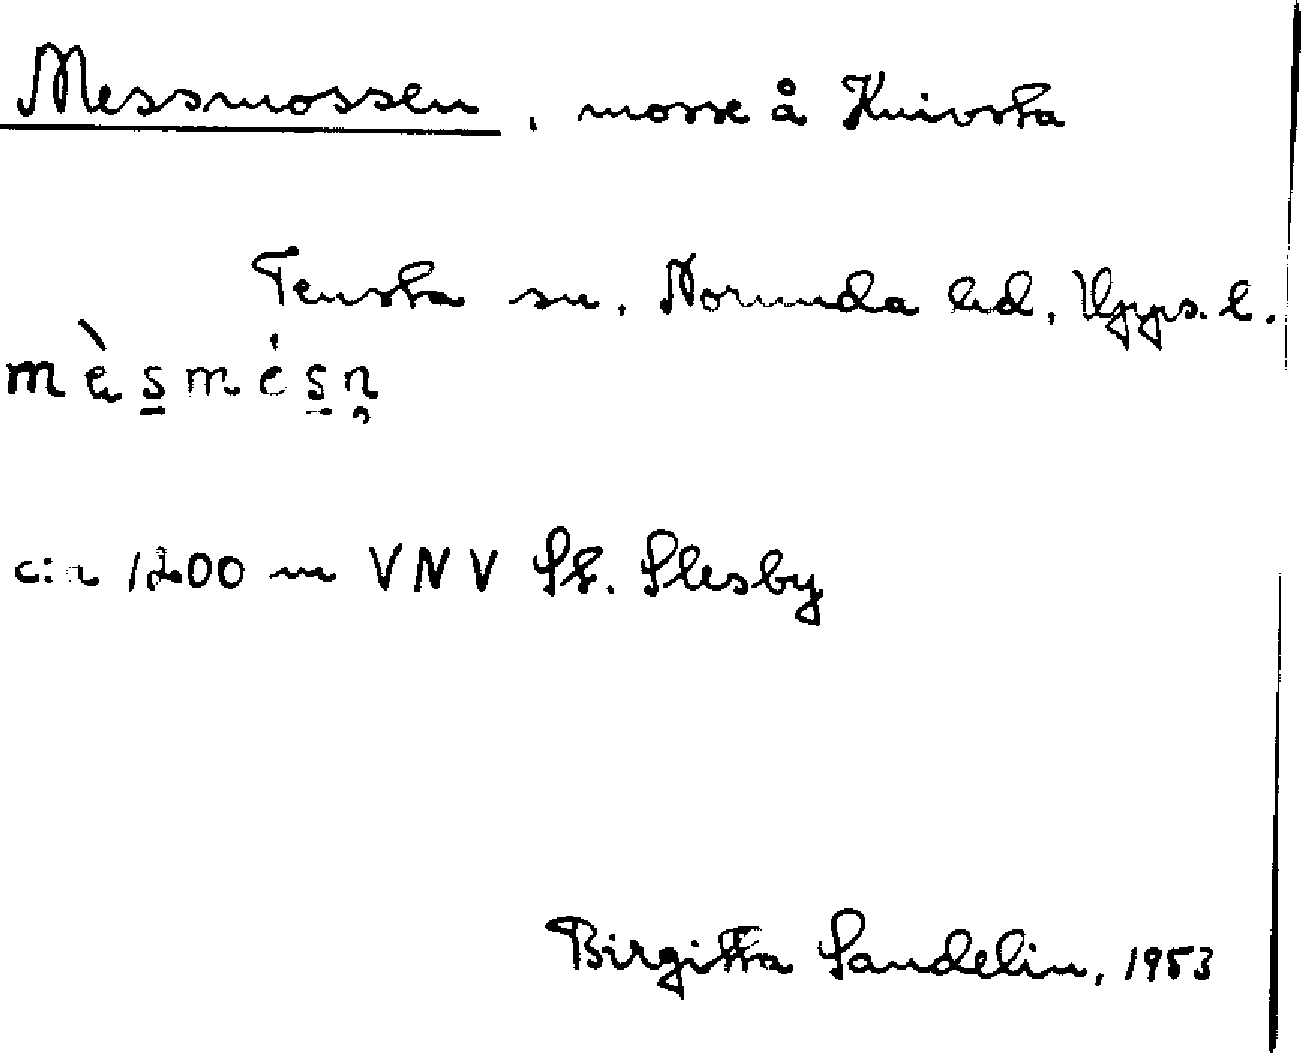 Messmossen, mosse å Knivsta
Tensta sn. Norunda hd, Upps. l.
mèsmésn̥
cia 1200 m VNV St. Slesby
Birgitta Sandelin, 1953